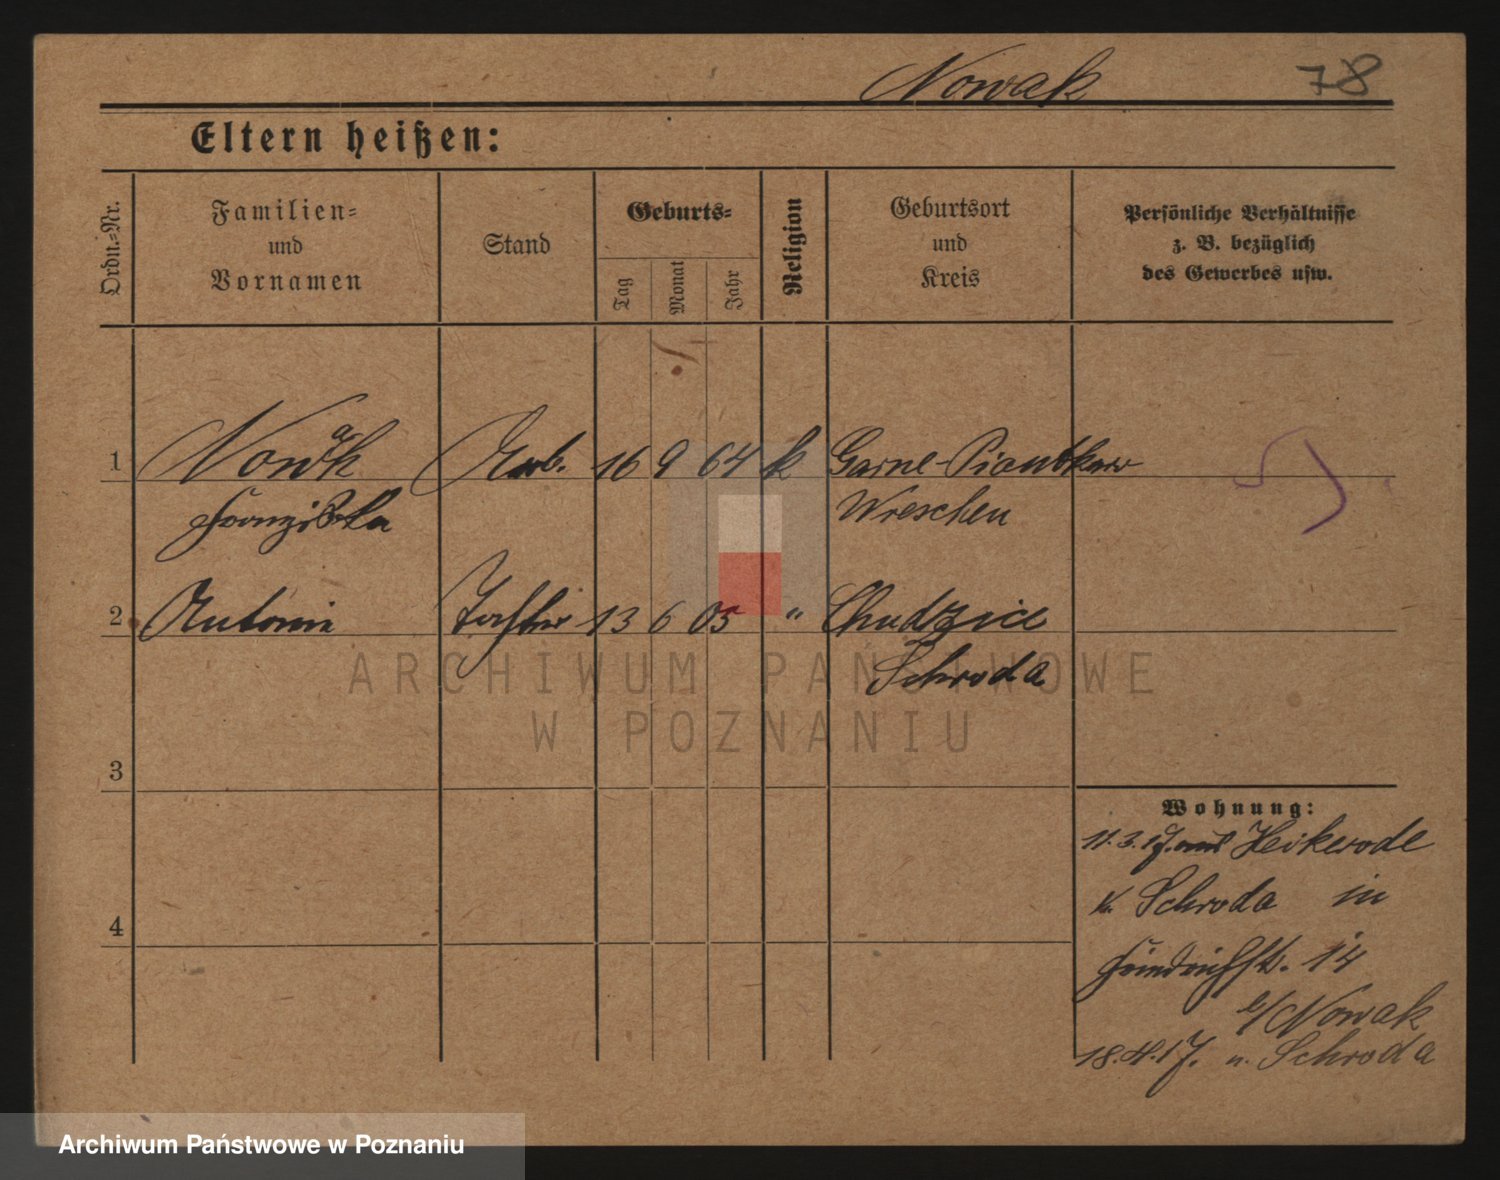 Nowak 78
Eltern heißen:
Ordn.-Nr.
Familien-
und
Vornamen
Stand
Geburts-
Tag
Monat
Jahr
Religion
Geburtsort
und
Kreis
Persönliche Verhältnisse
z. B. bezüglich
des Gewerbes usw.
1 Nowak Arb. 16 9 64 k
Franziska Wreschen
2 Antonie Tochter 13 6 05 " Chudzice
Schroda
3
4
Wohnung:
11.3.17. aus Heikerode
Kr. Schroda in
Friedrichstr. 14
b/Nowak
18.4.17. n. Schroda
ARCHIWUM PAŃSTWOWE
W POZNANIU
Archiwum Państwowe w Poznaniu